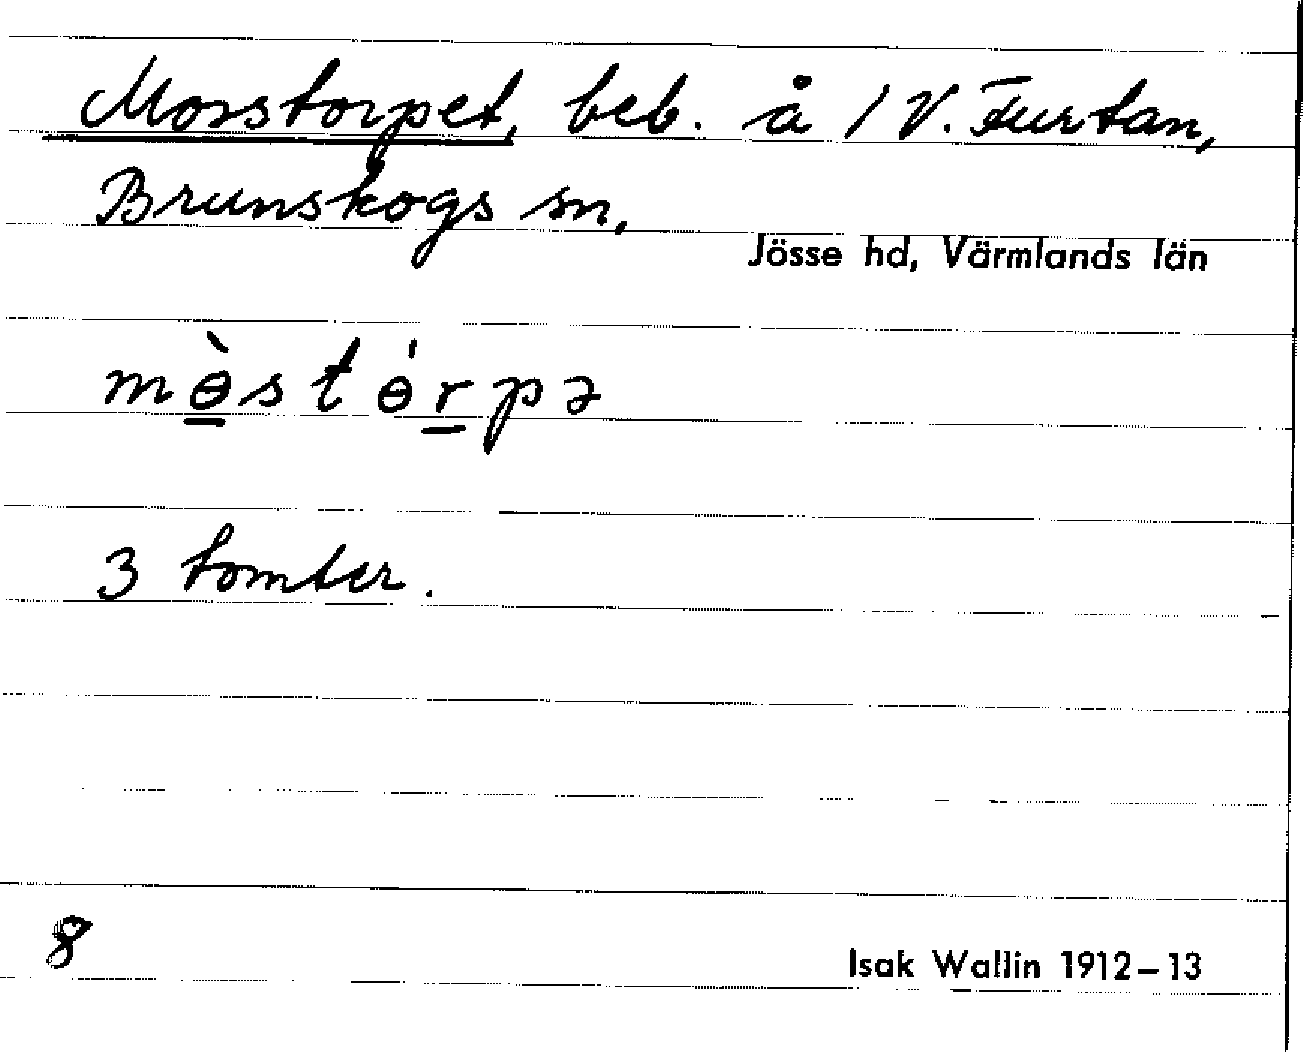 Morstorpet, beb. å 1 V. Furtan,
Brunskogs sn,
Jösse hd, Värmlands län
mɵ̱̀stɵ́ṟpə
3 tomter.
8
Isak Wallin 1912–13